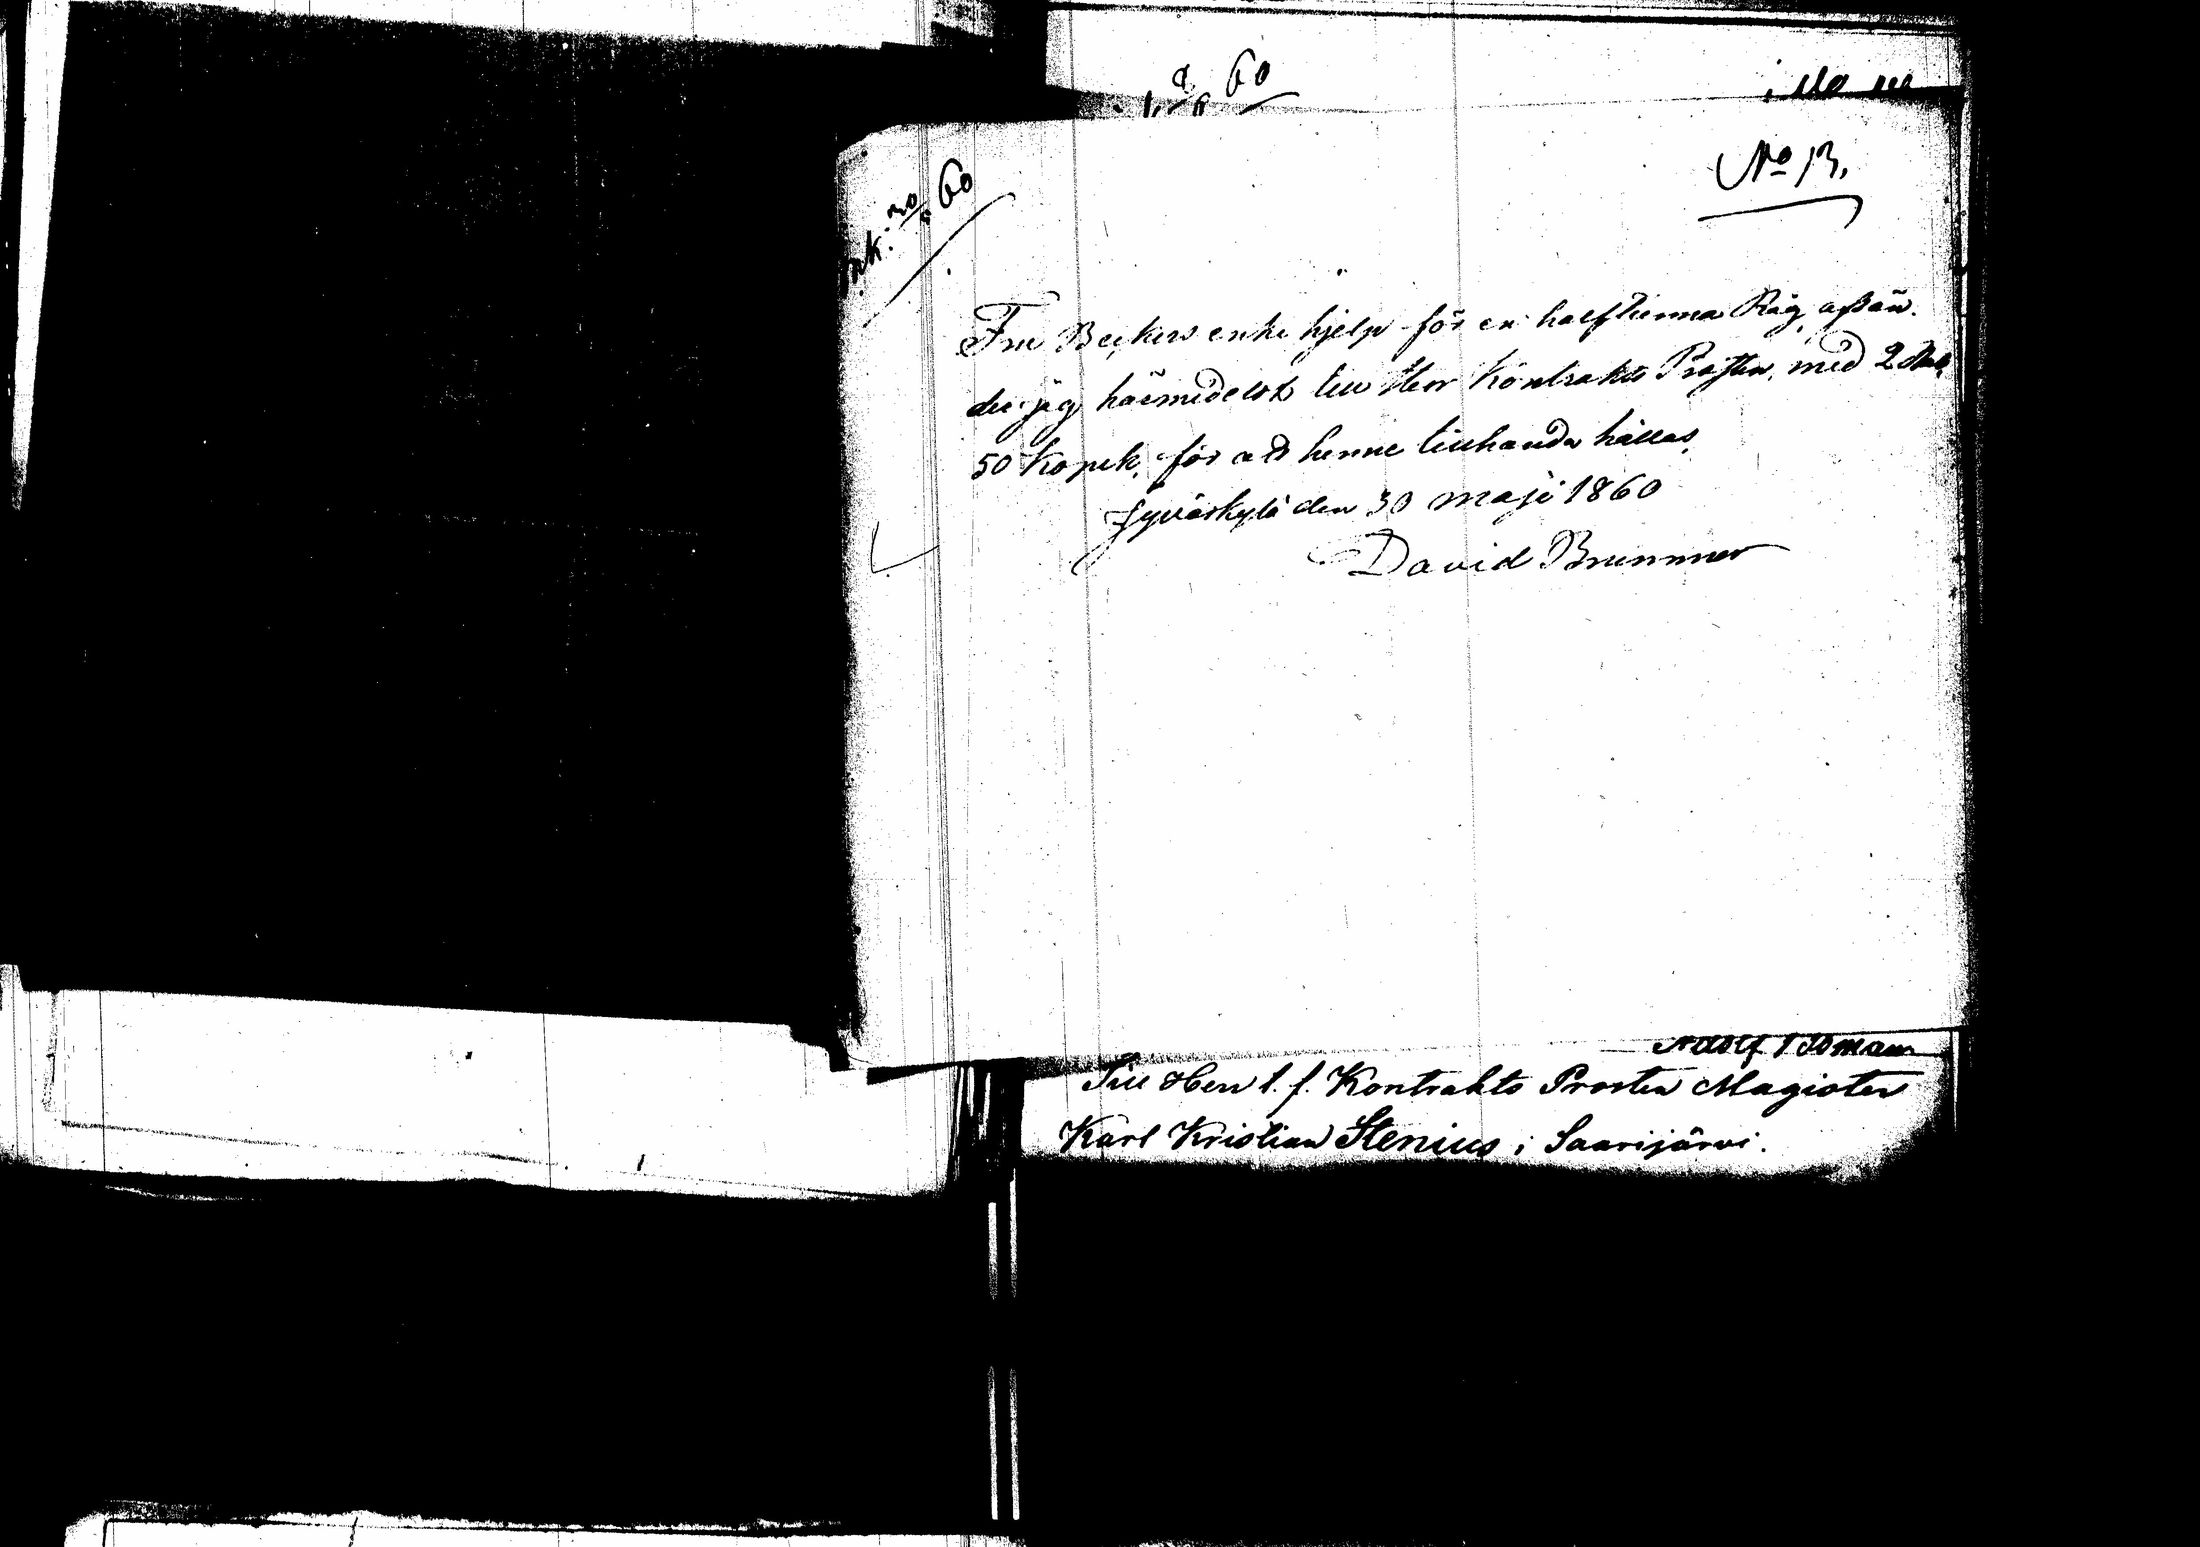 60
No 13.
ink. 30/5 60
Fru Beckers enke hjelp för en half tunna Råg, afsän-
der jag härmedelst till Herr Kontrakts Prosten, med 2 Rub.
50 Kopek, för att henne tillhanda hållas.
Jyväskylä den 30 maji 1860
David Brunner
Adolf
Till Herr t. f. Kontrakts Prosten Magister
Karl Kristian Stenius i Saarijärvi.